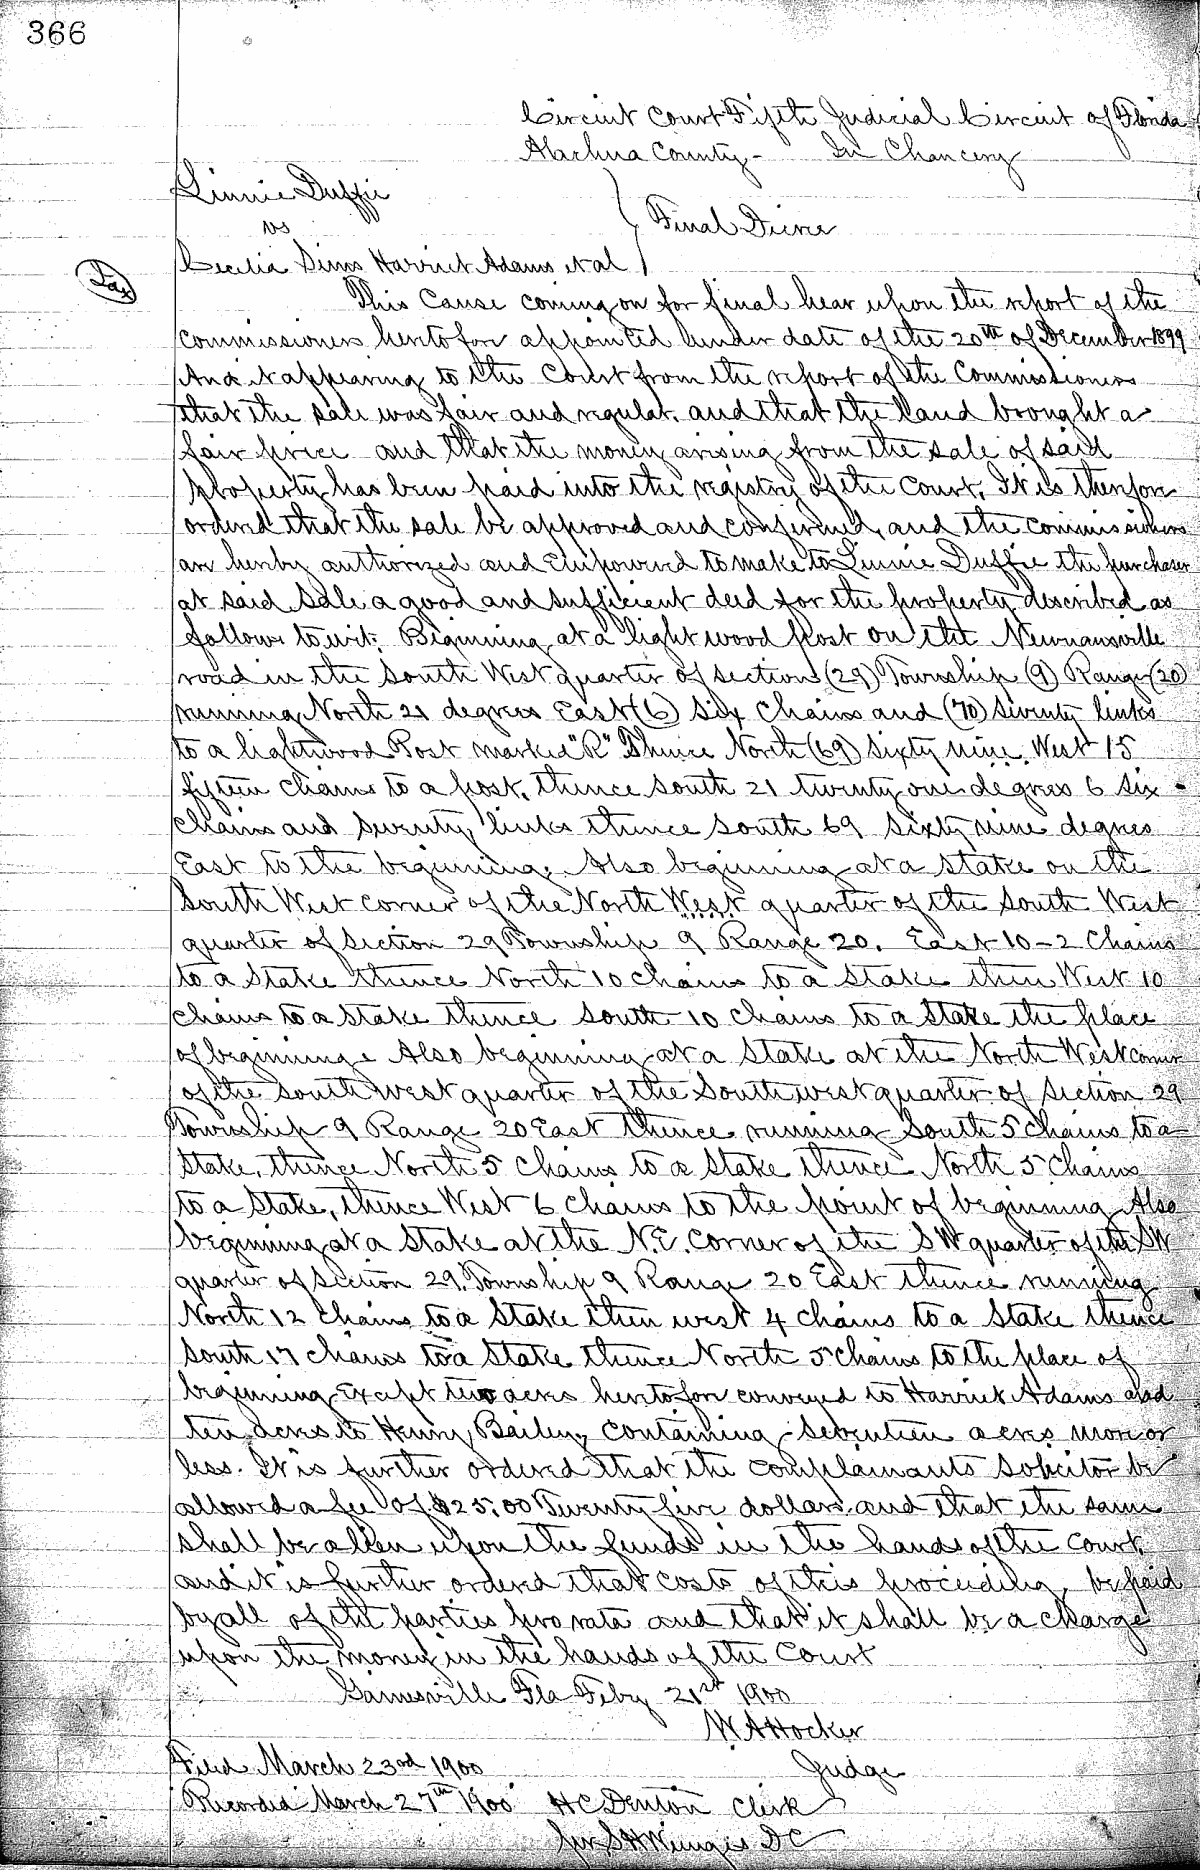 366
Circuit Court Fifth Judicial Circuit of Florida
Alachua County - In Chancery
Linnie Duffie
vs
Final Decree
Cecilia Sims Harriet Adams et al
This Cause coming on for final hear upon the report of the
commissioners heretofore appointed under date of the 20th of December 1899
And it appearing to the Court from the report of the Commissioners
that the sale was fair and regular, and that the land brought a
fair price and that the money arising from the sale of said
property has been paid into the registry of the Court, It is therefore
ordered that the sale be approved and confirmed, and the commissioners
are hereby authorized and Empowered to make to Linnie Duffie the purchaser
at said Sale a good and sufficient deed for the property described as
follows to wit: Beginning at a light wood post on the Newnansville
road in the South West quarter of section (29) Township (9) Range (20)
running North 21 degrees East (6) Six Chains and (70) Seventy links
to a lightwood Post marked "R" Thence North (69) Sixty nine West 15
fifteen chains to a post, thence South 21 twenty one degrees 6 six
chains and Seventy links thence South 69 Sixty nine degrees
East to the beginning. Also beginning at a Stake on the
South West corner of the North West quarter of the South West
quarter of Section 29 Township 9 Range 20. East 10-2 Chains
to a Stake thence North 10 chains to a Stake then West 10
chains to a Stake thence South 10 chains to a Stake the place
of beginning. Also beginning at a Stake at the North West corner
of the South West quarter of the South west quarter of Section 29
Township 9 Range 20 East thence running South 5 chains to a
Stake, thence North 5 chains to a Stake thence North 5 chains
to a Stake, thence West 6 chains to the point of beginning Also
beginning at a Stake at the N.E. Corner of the SW quarter of the SW
quarter of Section 29, Township 9 Range 20 East thence running
North 12 chains to a Stake then west 4 chains to a Stake thence
South 17 chains to a Stake thence North 5 chains to the place of
beginning Except two acres heretofore conveyed to Harriet Adams and
ten acres to Henry Bailey, Containing Seventeen acres more or
less. It is further ordered that the complainants Solicitor be
allowed a fee of $25.00 Twenty five dollars and that the same
shall be a lien upon the funds in the hands of the Court,
and it is further ordered that costs of this proceeding, be paid
by all of the parties pro rata and that it shall be a charge
upon the money in the hands of the Court
Gainesville Fla Feby 21st 1900
W. A Hocker
Filed March 23rd 1900 Judge
Recorded March 27th 1900 H C Denton Clerk
D C